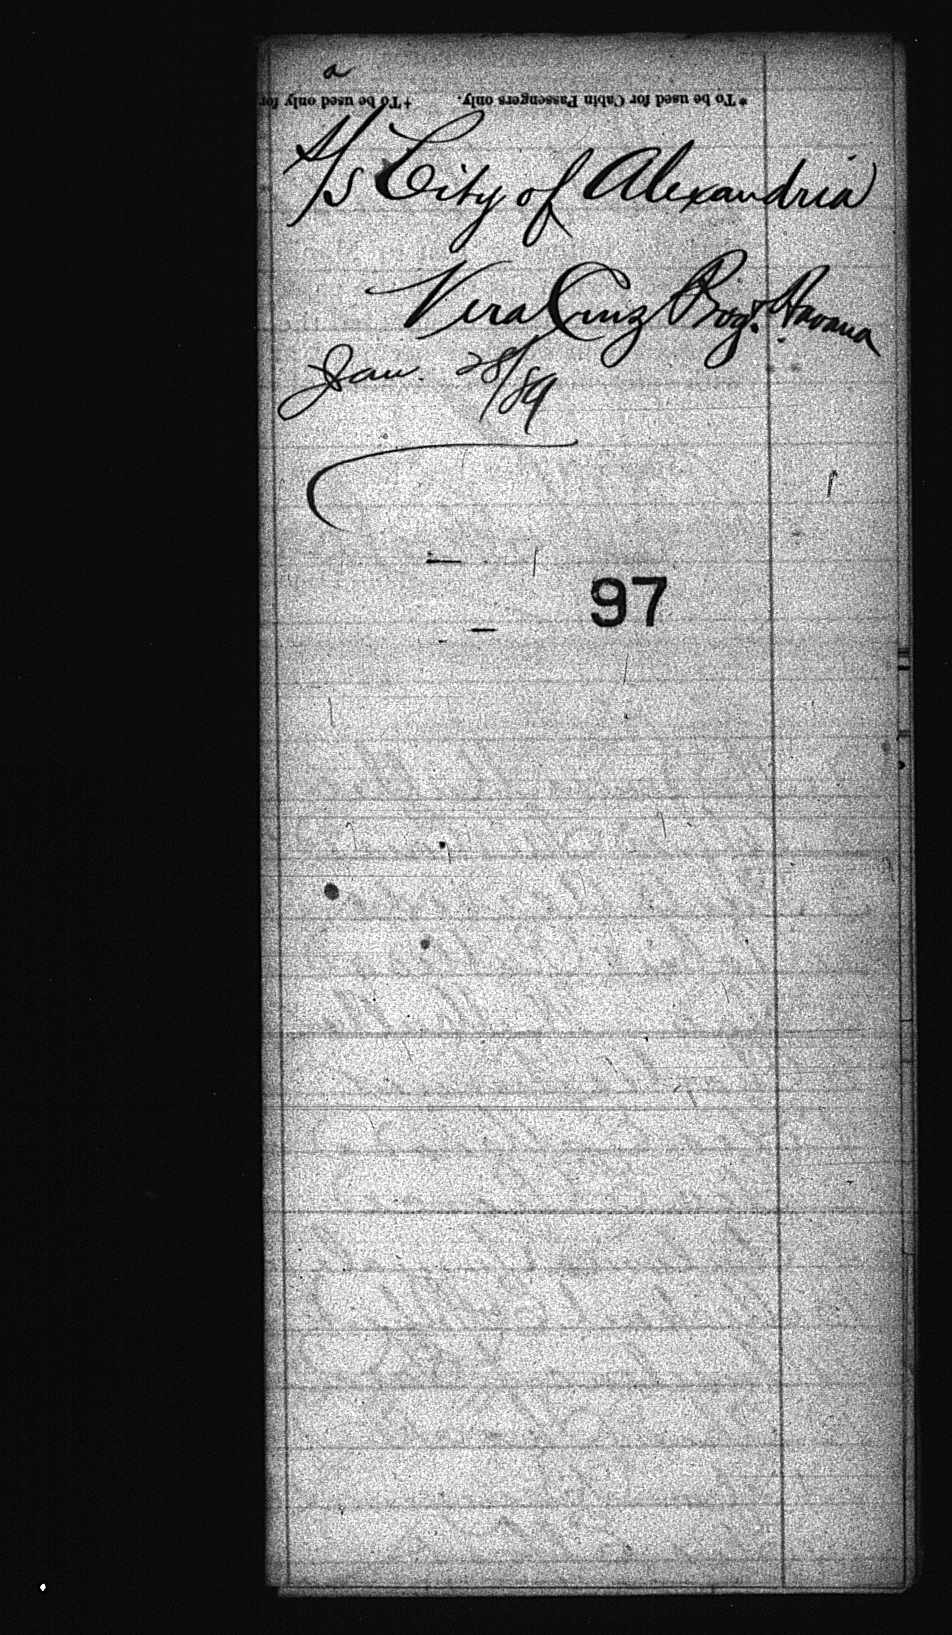 a
*To be used for Cabin Passengers only. †To be used only for
S/S City of Alexandria
Vera Cruz Prog. & Havana
Jan. 28/89
97